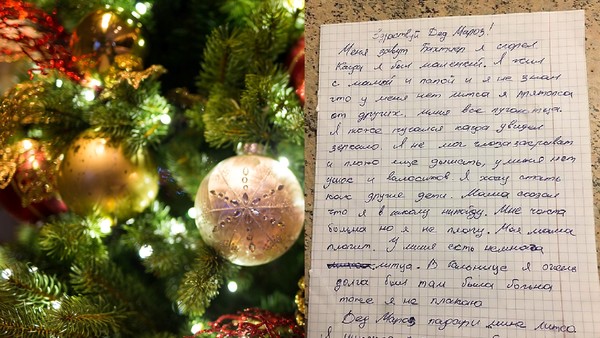 Здраствуй Дед Мароз!
Меня завут я сгорел
Када я был маленкий. Я жил
с мамай и папай и я не знал
что у меня нет литса я
от других. миня все
Я тоже пугался када увидел
зеркало. Я не мог глаза закрыват
и плохо ещё дышать, у миня нет
ушок и валосиков Я хочу стать
как другие дети. Мама сказал
что я в школу нипайду. Мне часта
больна но я не плачу. Моя мама
плачит. У миня есть немнога
литцо. В больнице я очень
долга был там была больна
тоже я не плакою
Дед Мароз падари мине литсо